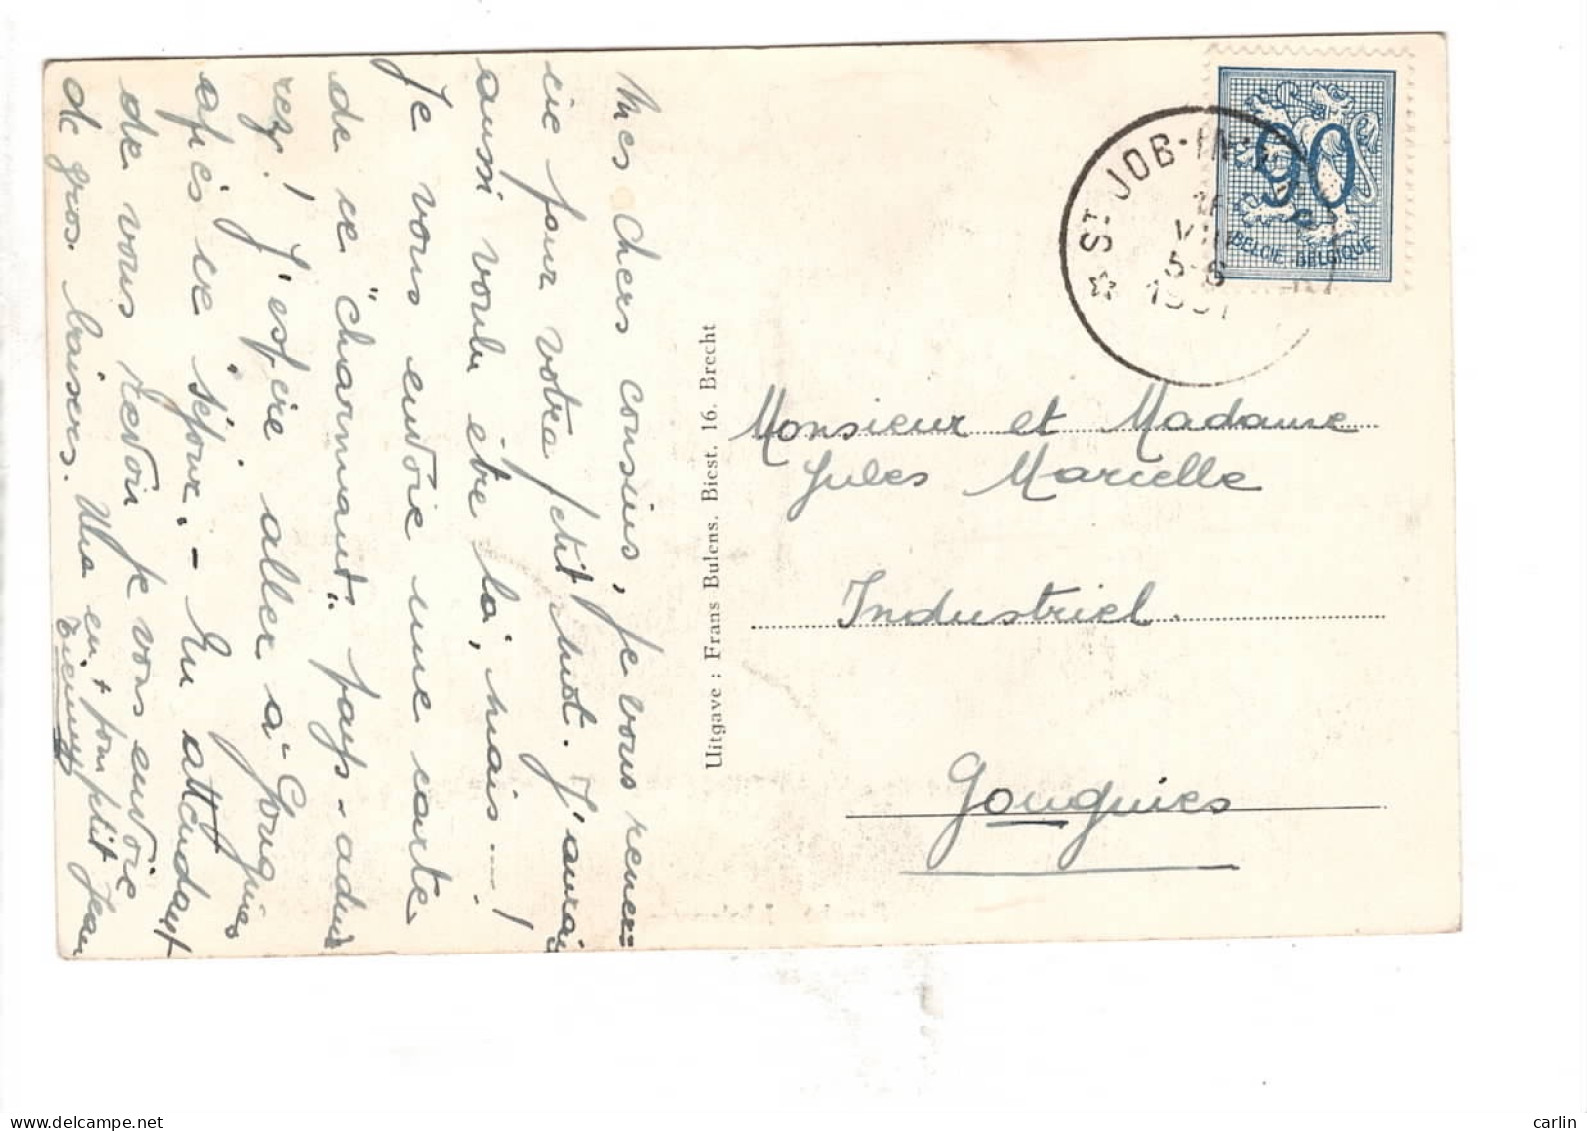 Mes chers cousins, je vous remer=
cie pour votre petit mot. J'aurai
aussi voulu être là, mais ....!
Je vous envoie une carte
de ce "charmant" pays - admi
rez! J'espère aller à Gougnies
après ce séjour. - En attendant
de vous revoir je vous envoie
de gros baisers. Une en + pour ptit Jean
Uitgave : Frans Bulens. Biest. 16. Brecht
ST JOB-IN-
VII
5-6
1951
90
BELGIE. BELGIQUE
Monsieur et Madame
Jules Marcelle
Industriel.
Gougnies
carlin